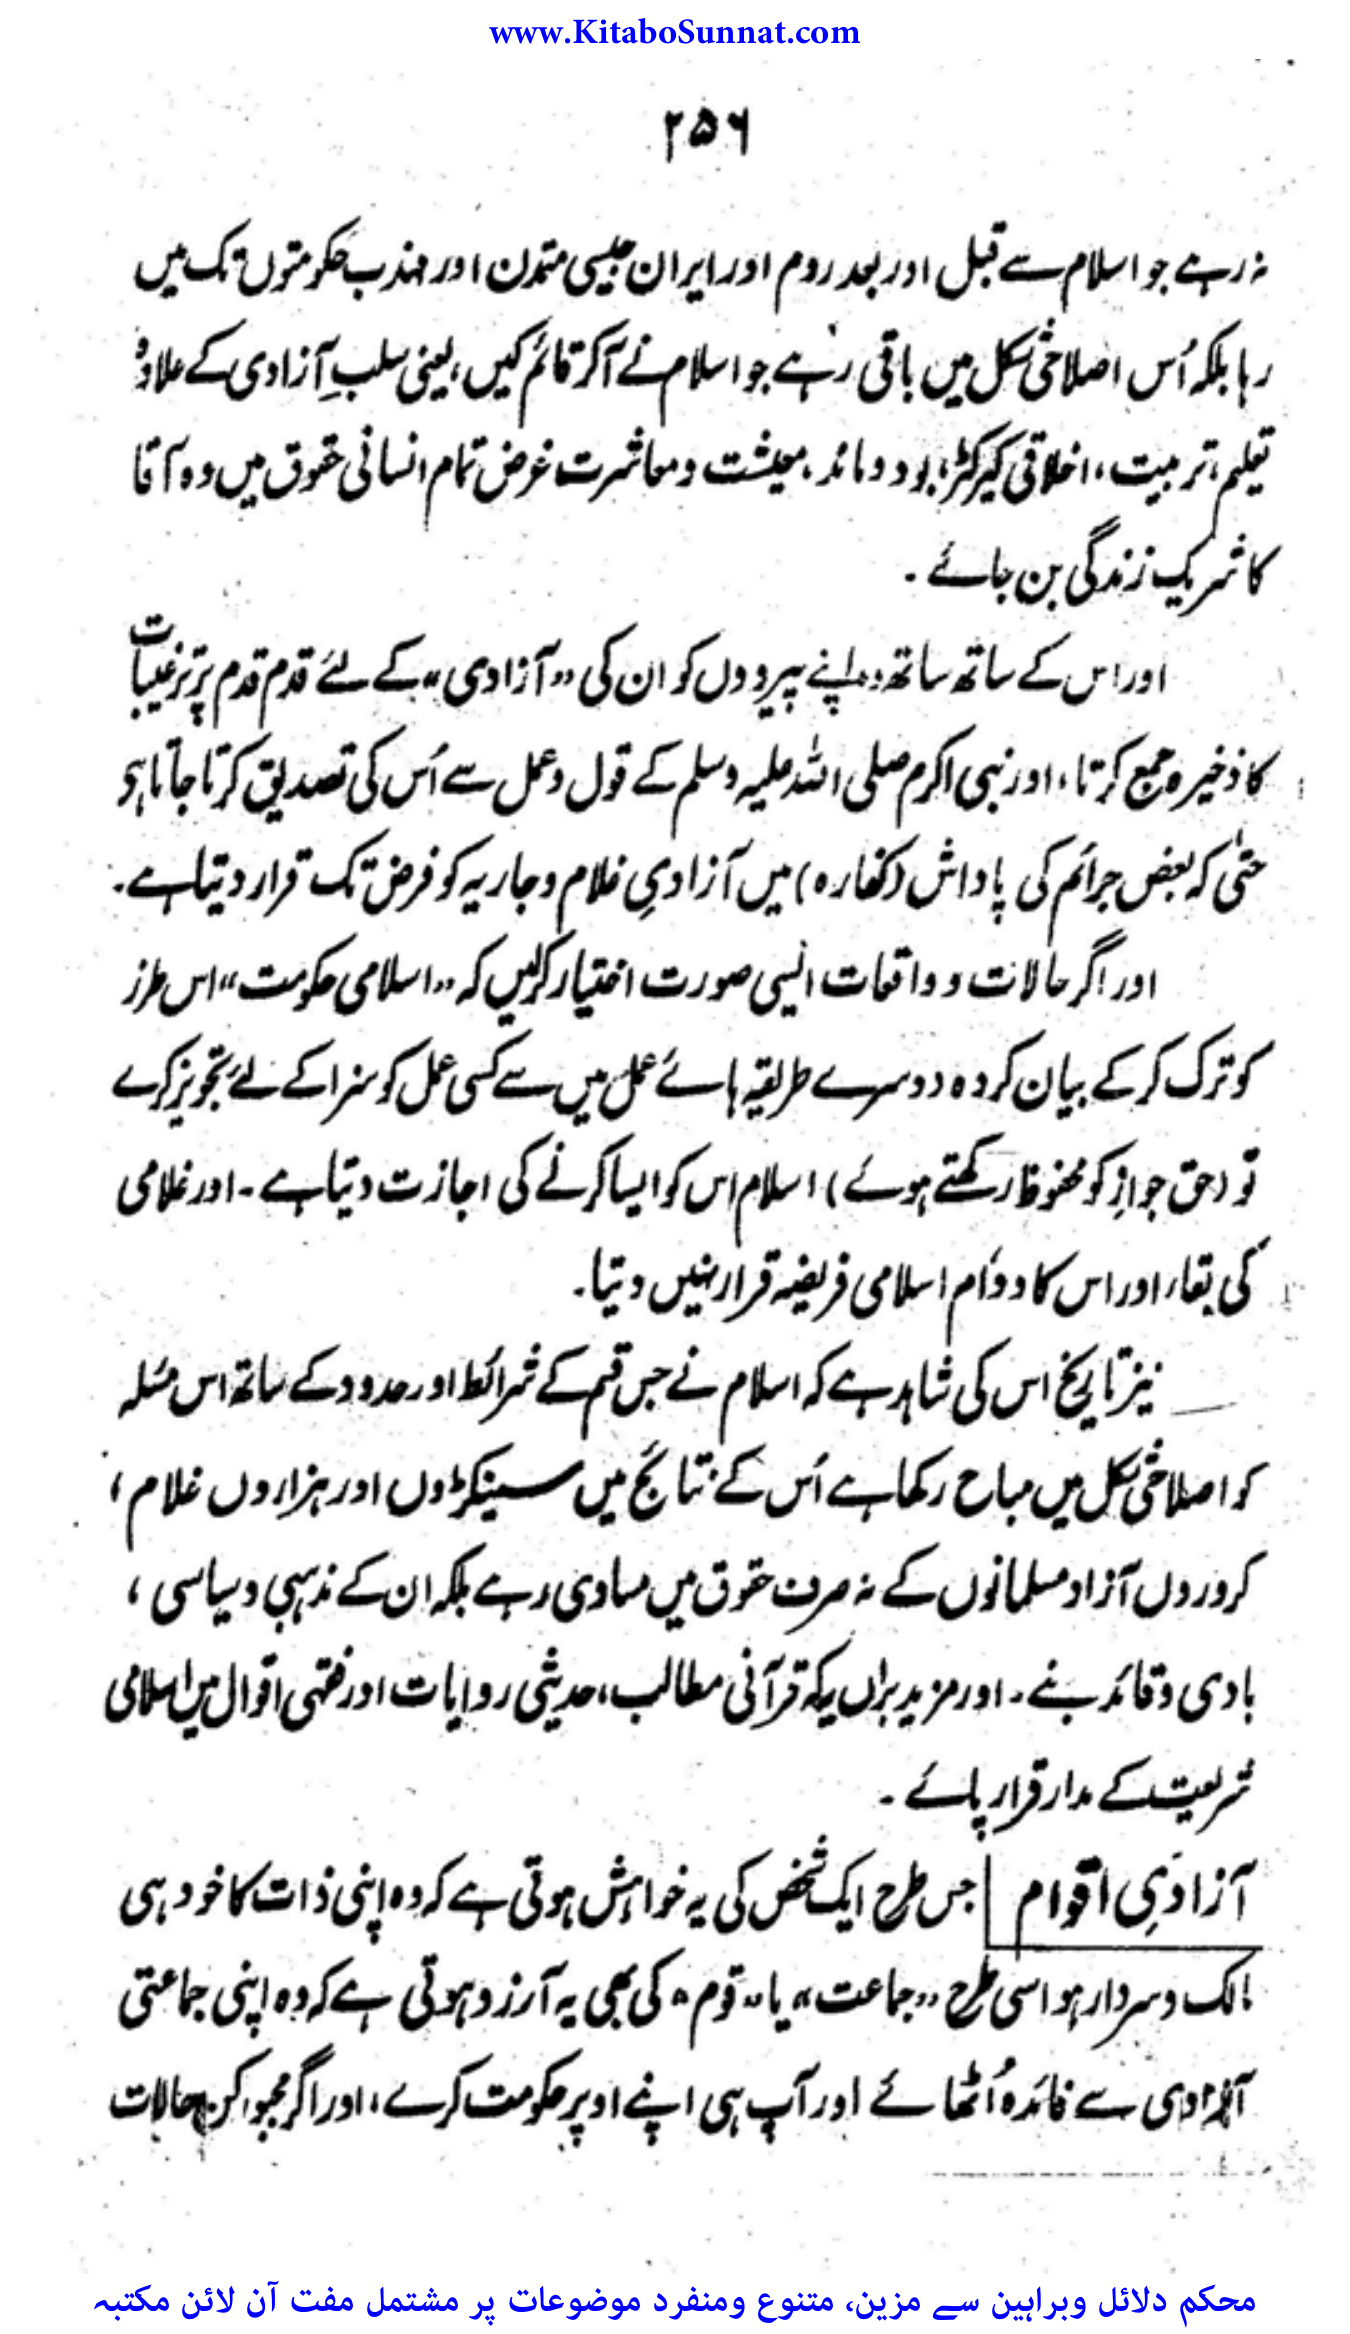 www.KitaboSunnat.com
۲۵۶
نہ رہے جو اسلام سے قبل اور بعد روم اور ایران جیسی متمدن اور مہذب حکومتوں تک میں
رہا بلکہ اُس اصلاحی شکل میں باقی رہے جو اسلام نے آکر قائم کیں، یعنی سلبِ آزادی کے علاوہ
تعلیم، تربیت، اخلاقی کیرکٹر، بود و ماند، معیشت و معاشرت غرض تمام انسانی حقوق میں وہ آقا
کا شریک زندگی بن جائے۔
اور اس کے ساتھ ساتھ وہ اپنے پیرووں کو ان کی "آزادی" کے لئے قدم قدم پر ترغیبات
کا ذخیرہ جمع کرتا، اور نبی اکرم صلی اللہ علیہ وسلم کے قول و عمل سے اُس کی تصدیق کرتا جاتا ہو
حتیٰ کہ بعض جرائم کی پاداش (کفارہ) میں آزادیِ غلام و جاریہ کو فرض تک قرار دیتا ہے۔
اور اگر حالات و واقعات ایسی صورت اختیار کرلیں کہ "اسلامی حکومت" اس طرز
کو ترک کر کے بیان کردہ دوسرے طریقہ ہائے عمل میں سے کسی عمل کو سزا کے لئے تجویز کرے
تو (حق جواز کو محفوظ رکھتے ہوئے) اسلام اس کو ایسا کرنے کی اجازت دیتا ہے۔ اور غلامی
کی بقاء اور اس کا دوام اسلامی فریضہ قرار نہیں دیتا۔
نیز تاریخ اس کی شاہد ہے کہ اسلام نے جس قسم کے شرائط اور حدود کے ساتھ اس مسئلہ
کو اصلاحی شکل میں مباح رکھا ہے اُس کے نتائج میں سینکڑوں اور ہزاروں غلام،
کروروں آزاد مسلمانوں کے نہ صرف حقوق میں مساوی رہے بلکہ ان کے مذہبی و سیاسی،
ہادی و قائد بنے۔ اور مزید براں یہ کہ قرآنی مطالب، حدیثی روایات اور فقہی اقوال میں اسلامی
شریعت کے مدار قرار پائے۔
آزادیِ اقوام جس طرح ایک شخص کی یہ خواہش ہوتی ہے کہ وہ اپنی ذات کا خود ہی
مالک و سردار ہو اسی طرح "جماعت" یا "قوم" کی بھی یہ آرزو ہوتی ہے کہ وہ اپنی جماعتی
آزادی سے فائدہ اُٹھائے اور آپ ہی اپنے اوپر حکومت کرے، اور اگر مجبور کن حالات
محکم دلائل وبراہین سے مزین، متنوع ومنفرد موضوعات پر مشتمل مفت آن لائن مکتبہ